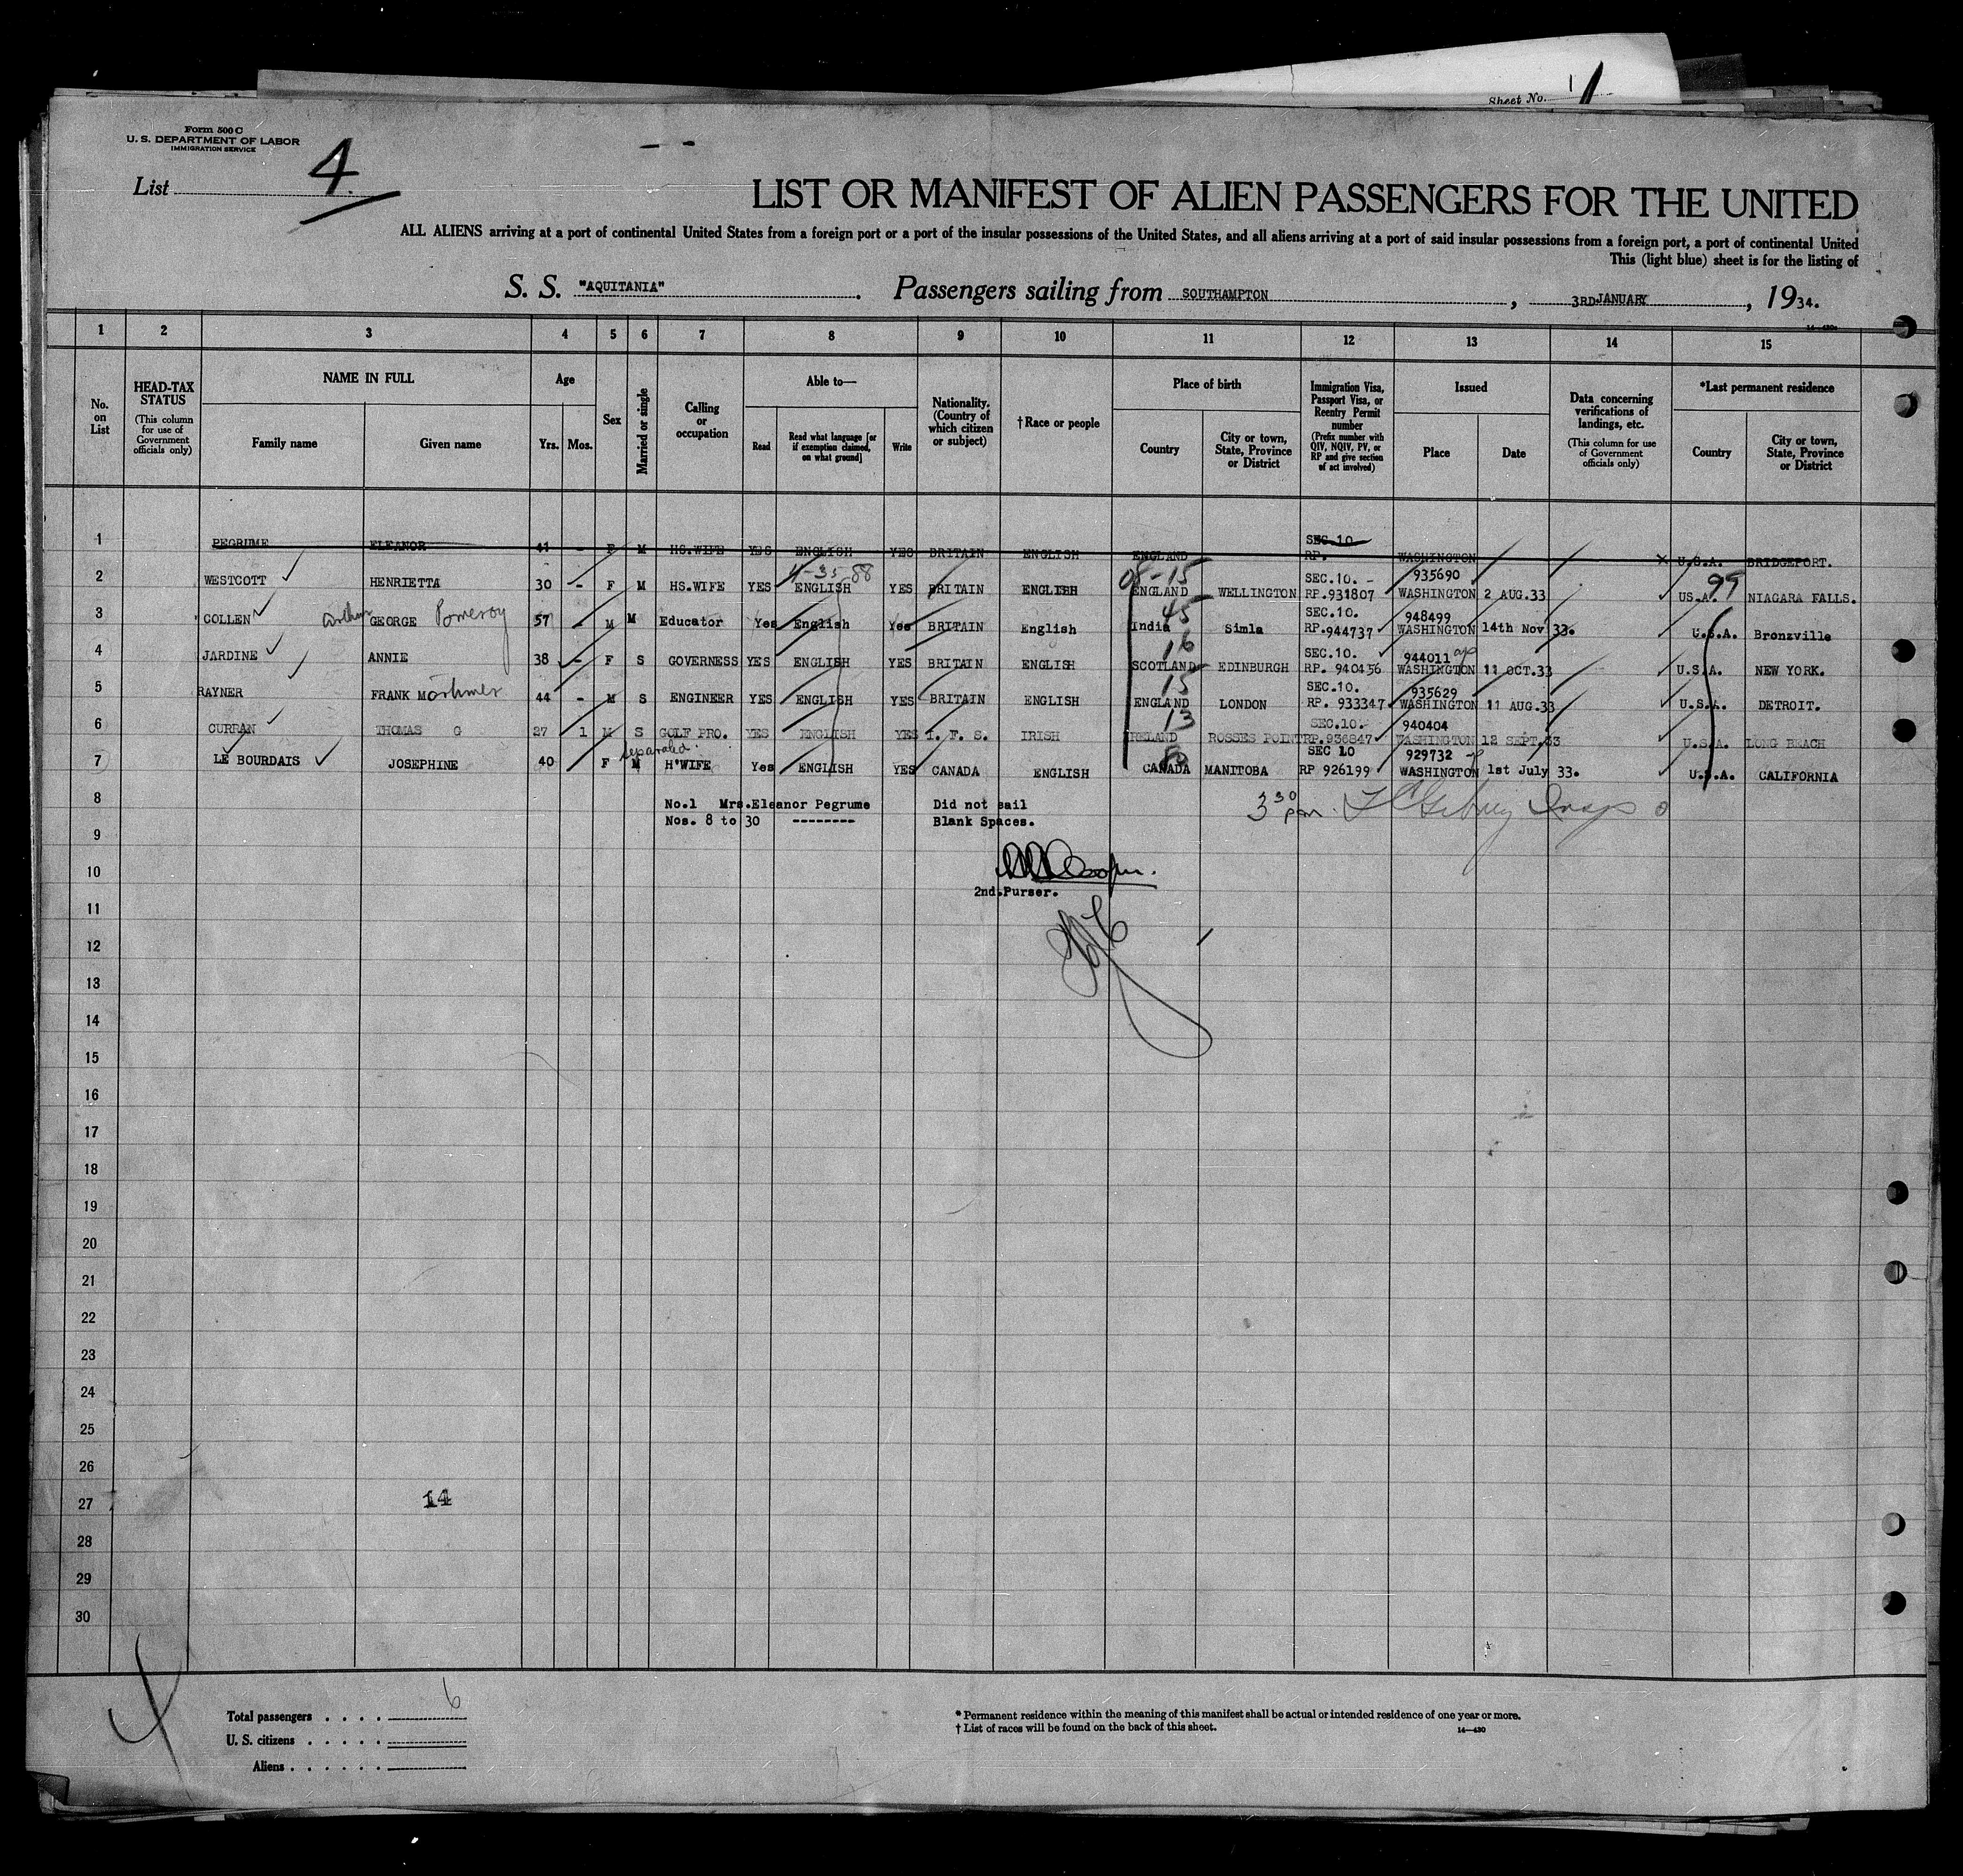 Sheet No. 1
Form 500 C
U. S. DEPARTMENT OF LABOR
IMMIGRATION SERVICE
List 4
LIST OR MANIFEST OF ALIEN PASSENGERS FOR THE UNITED
ALL ALIENS arriving at a port of continental United States from a foreign port or a port of the insular possessions of the United States, and all aliens arriving at a port of said insular possessions from a foreign port, a port of continental United
This (light blue) sheet is for the listing of
S. S. "AQUITANIA". Passengers sailing from SOUTHAMPTON, 3RD JANUARY, 1934.
14—430
1 2 3 4 5 6 7 8 9 10 11 12 13 14 15
No. on List
HEAD-TAX STATUS (This column for use of Government officials only)
NAME IN FULL Family name Given name
Age Yrs. Mos.
Sex
Married or single
Calling or occupation
Able to— Read Read what language [or if exemption claimed, on what ground] Write
Nationality. (Country of which citizen or subject)
†Race or people
Place of birth Country City or town, State, Province or District
Immigration Visa, Passport Visa, or Reentry Permit number (Prefix number with QIV, NQIV, PV, or RP and give section of act involved)
Issued Place Date
Data concerning verifications of landings, etc. (This column for use of Government officials only)
*Last permanent residence Country City or town, State, Province or District
1 PEGRUME ELEANOR 41 - F M HS.WIFE YES ENGLISH YES BRITAIN ENGLISH ENGLAND SEC.10 RP. WASHINGTON x U.S.A. BRIDGEPORT.
4-35-88 08-15 99
2 WESTCOTT HENRIETTA 30 - F M HS.WIFE YES ENGLISH YES BRITAIN ENGLISH ENGLAND WELLINGTON SEC.10. - RP.931807 935690 WASHINGTON 2 AUG.33 US.A. NIAGARA FALLS.
45
3 COLLEN Arthur GEORGE Pomeroy 57 - M M Educator Yes English Yes BRITAIN English India Simla SEC.10. RP.944737 948499 WASHINGTON 14th Nov 33. U.S.A. Bronzville
16
4 JARDINE ANNIE 38 - F S GOVERNESS YES ENGLISH YES BRITAIN ENGLISH SCOTLAND EDINBURGH SEC.10. RP. 940456 944011 WASHINGTON 11 OCT.33 U.S.A. NEW YORK.
15
5 RAYNER FRANK Mortimer 44 - M S ENGINEER YES ENGLISH YES BRITAIN ENGLISH ENGLAND LONDON SEC.10. RP. 933347 935629 WASHINGTON 11 AUG.33 U.S.A. DETROIT.
13
6 CURRAN THOMAS G 27 1 M S GOLF PRO. YES ENGLISH YES I. F. S. IRISH IRELAND ROSSES POINT SEC.10.- RP.936847 940404 WASHINGTON 12 SEPT.33 U.S.A. LONG BEACH
separated. 50
7 LE BOURDAIS JOSEPHINE 40 F M H'WIFE Yes ENGLISH YES CANADA ENGLISH CANADA MANITOBA SEC 10 RP 926199 929732 WASHINGTON 1st July 33. U.S.A. CALIFORNIA
8 No.1 Mrs.Eleanor Pegrume Did not sail
Nos. 8 to 30 -------- Blank Spaces.
3 30 pm. Insp
9
10
2nd.Purser.
11
12
13
14
15
16
17
18
19
20
21
22
23
24
25
26
27 14
28
29
30
Total passengers . . . . 6
U. S. citizens . . . . .
Aliens . . . . . .
* Permanent residence within the meaning of this manifest shall be actual or intended residence of one year or more.
† List of races will be found on the back of this sheet. 14—430